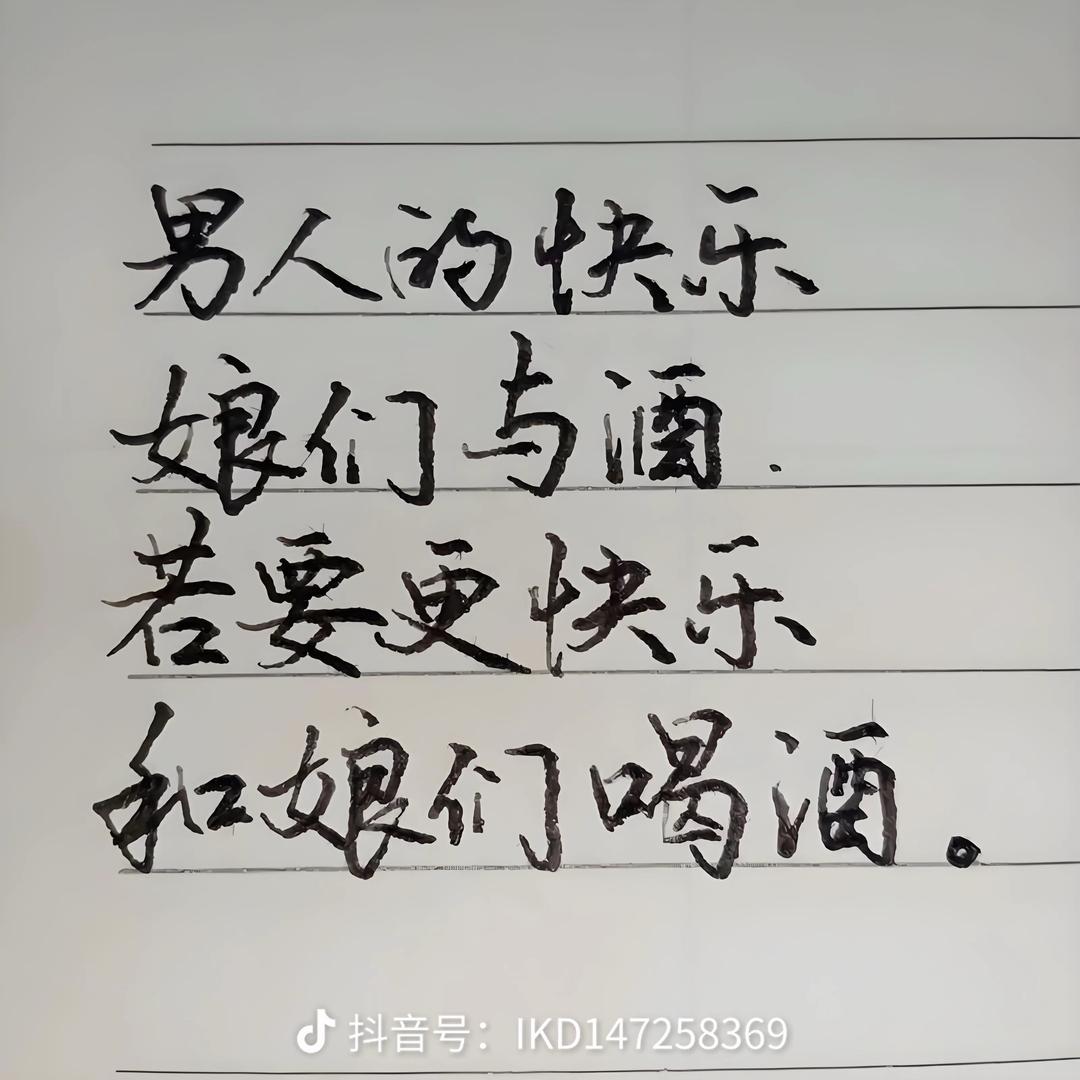 男人的快乐
娘们与酒.
若要更快乐
和娘们喝酒。
抖音号：IKD147258369